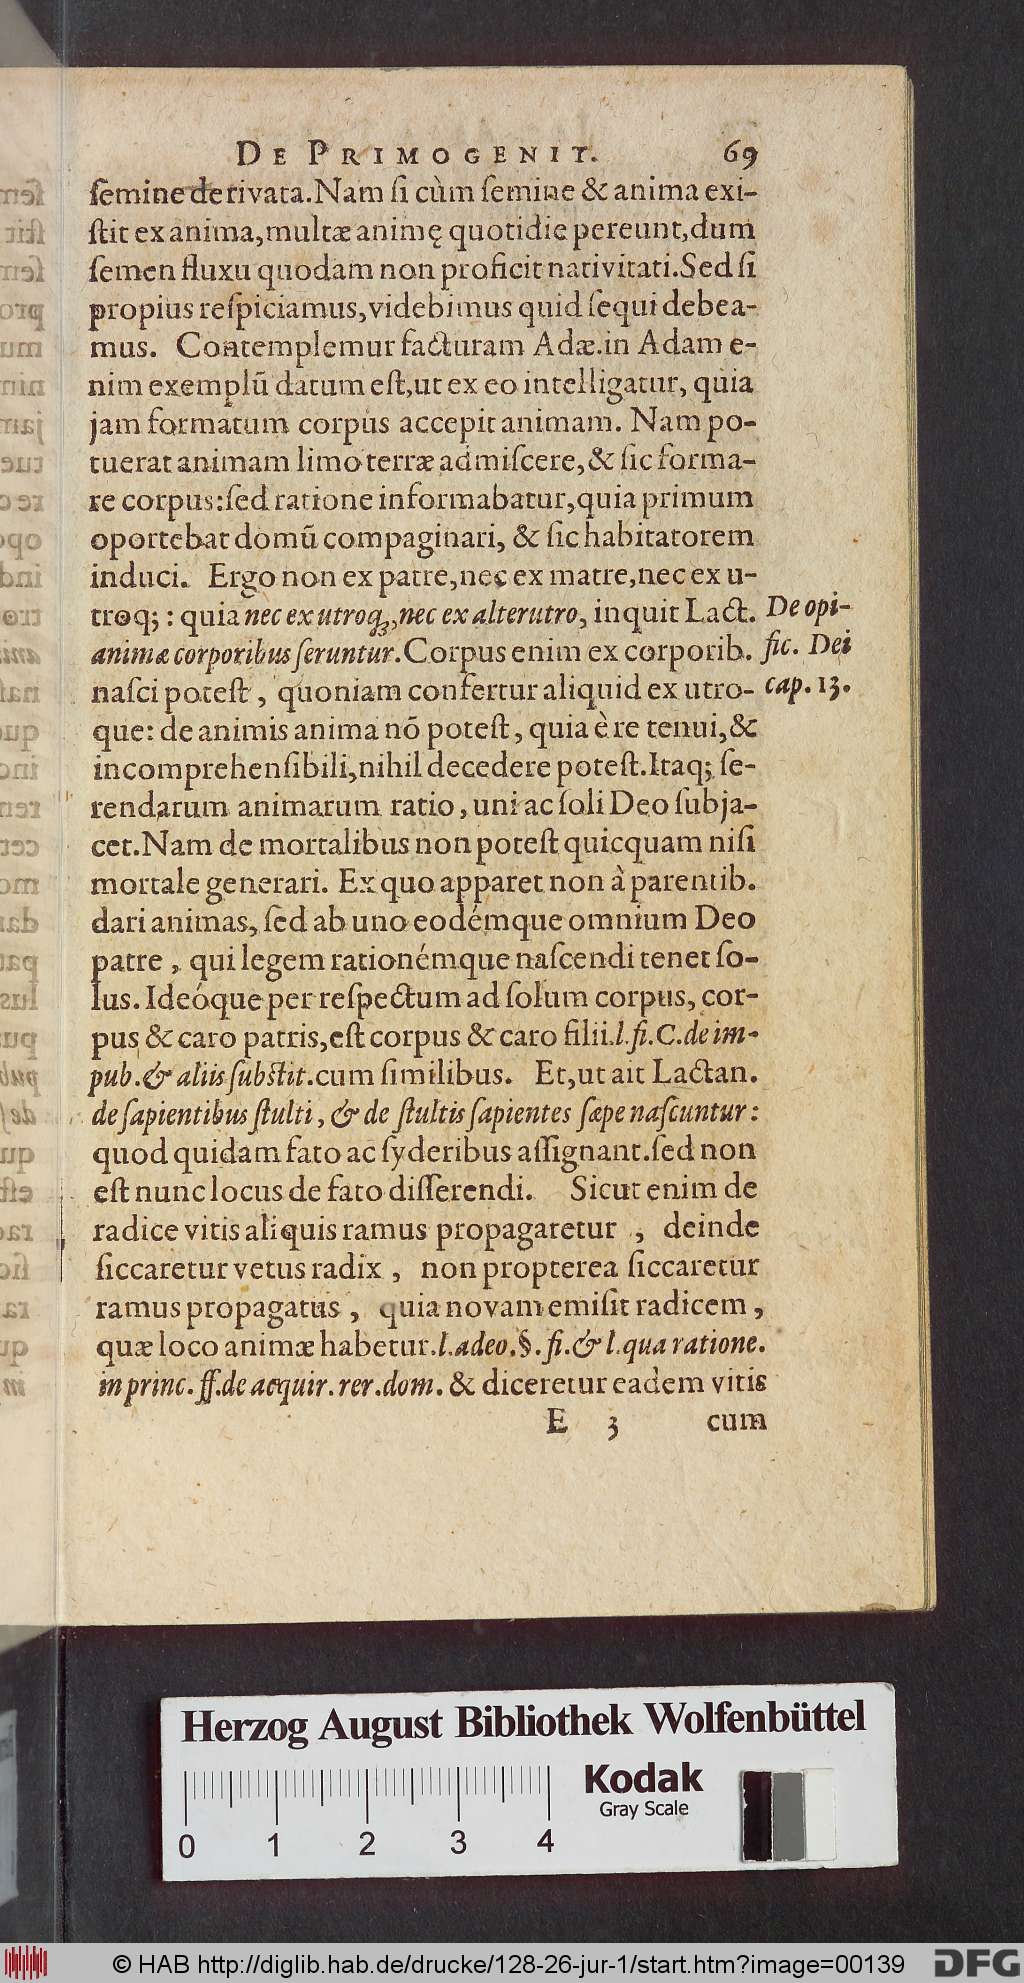 DE PRIMOGENIT. 69
ſemine derivata. Nam ſi cùm ſemine & anima exi-
ſtit ex anima, multæ animę quotidie pereunt, dum
ſemen fluxu quodam non proficit nativitati. Sed ſi
propius reſpiciamus, videbimus quid ſequi debea-
mus. Contemplemur facturam Adæ. in Adam e-
nim exemplũ datum eſt, ut ex eo intelligatur, quia
jam formatum corpus accepit animam. Nam po-
tuerat animam limo terræ admiſcere, & ſic forma-
re corpus: ſed ratione informabatur, quia primum
oportebat domũ compaginari, & ſic habitatorem
induci. Ergo non ex patre, nec ex matre, nec ex u-
troq;: quia nec ex utroq;, nec ex alterutro, inquit Lact.
De opi-
animæ corporibus ſeruntur. Corpus enim ex corporib.
fic. Dei
naſci poteſt, quoniam confertur aliquid ex utro-
cap. 13.
que: de animis anima nõ poteſt, quia è re tenui, &
incomprehenſibili, nihil decedere poteſt. Itaq; ſe-
rendarum animarum ratio, uni ac ſoli Deo ſubja-
cet. Nam de mortalibus non poteſt quicquam niſi
mortale generari. Ex quo apparet non à parentib.
dari animas, ſed ab uno eodémque omnium Deo
patre, qui legem rationémque naſcendi tenet ſo-
lus. Ideóque per reſpectum ad ſolum corpus, cor-
pus & caro patris, eſt corpus & caro filii. l. fi. C. de im-
pub. & aliis ſubſtit. cum ſimilibus. Et, ut ait Lactan.
de ſapientibus ſtulti, & de ſtultis ſapientes ſæpe naſcuntur:
quod quidam fato ac ſyderibus aſſignant. ſed non
eſt nunc locus de fato diſſerendi. Sicut enim de
radice vitis aliquis ramus propagaretur, deinde
ſiccaretur vetus radix, non propterea ſiccaretur
ramus propagatus, quia novam emiſit radicem,
quæ loco animæ habetur. l. adeo. §. fi. & l. qua ratione.
in princ. ff. de acquir. rer. dom. & diceretur eadem vitis
E 3 cum
Herzog August Bibliothek Wolfenbüttel
Kodak
Gray Scale
0 1 2 3 4
© HAB http://diglib.hab.de/drucke/128-26-jur-1/start.htm?image=00139
DFG